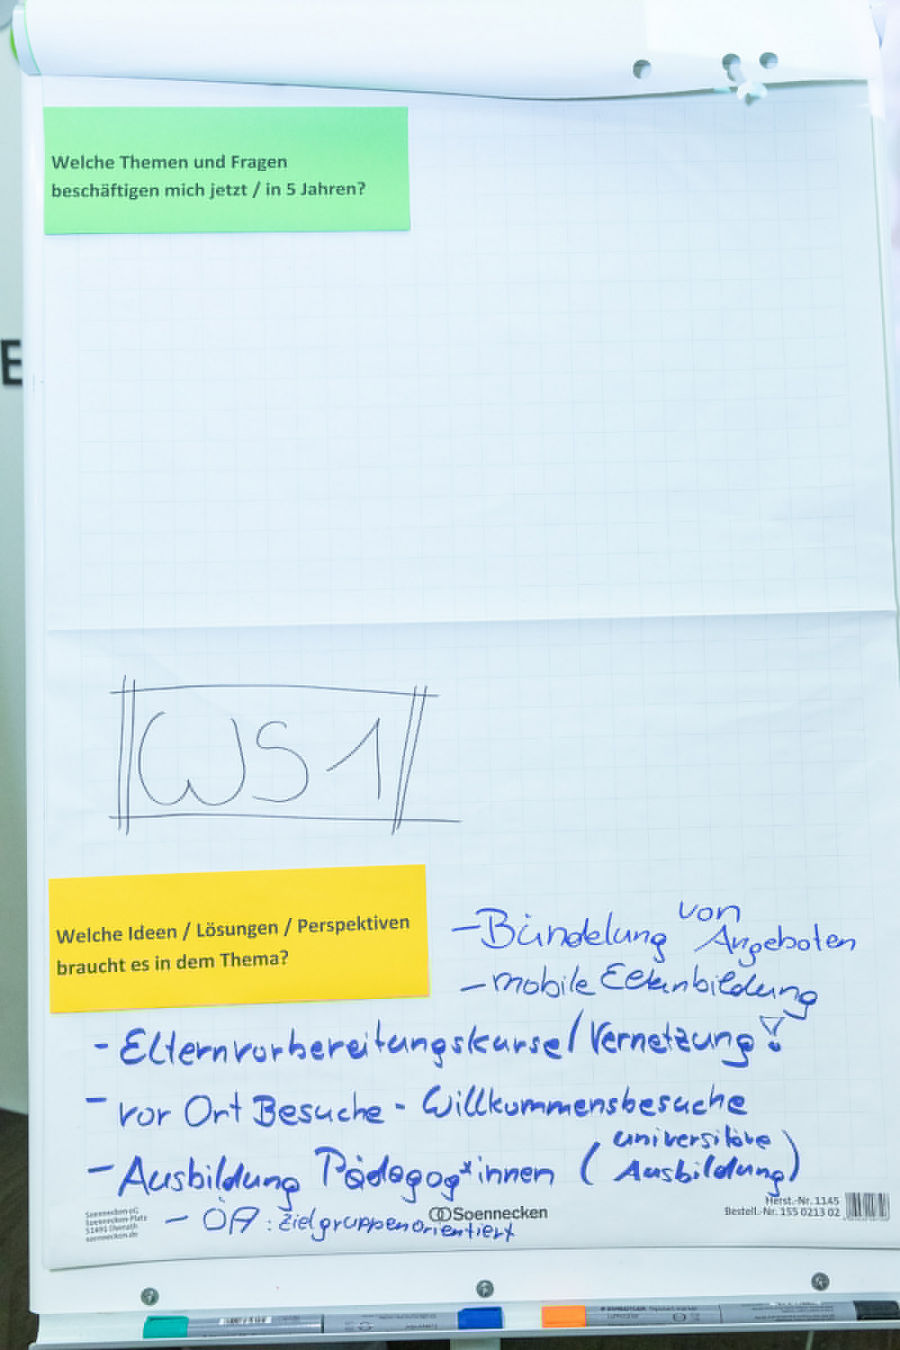 Welche Themen und Fragen
beschäftigen mich jetzt / in 5 Jahren?
E
WS1
Welche Ideen / Lösungen / Perspektiven
braucht es in dem Thema?
- Bündelung von Angeboten
- mobile Elternbildung
- Elternvorbereitungskurse / Vernetzung!
- vor Ort Besuche - Willkommensbesuche
- Ausbildung Pädagog*innen (universitäre Ausbildung)
- ÖA: zielgruppenorientiert
Soennecken eG
Soennecken-Platz
51491 Overath
soennecken.de
Soennecken
Herst.-Nr. 1145
Bestell.-Nr. 155 0213 02